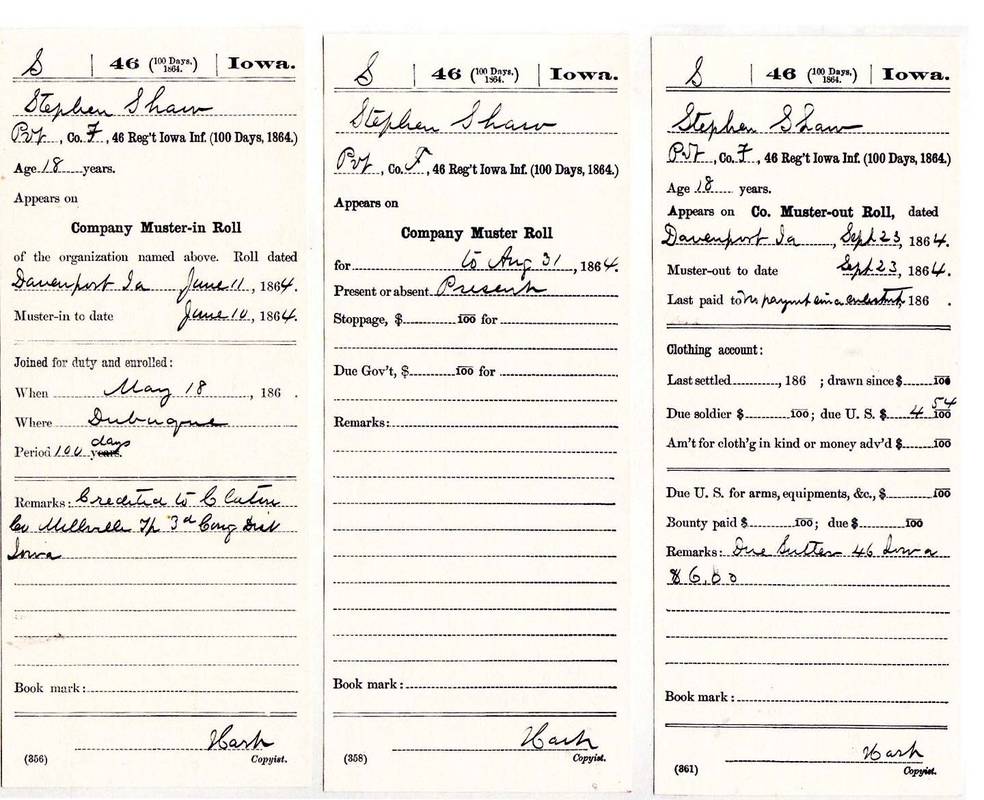 S | 46 (100 Days, 1864.) | Iowa.
Stephen Shaw
Pvt, Co. F, 46 Reg't Iowa Inf. (100 Days, 1864.)
Age 18 years.
Appears on
Company Muster-in Roll
of the organization named above. Roll dated
Davenport Ia June 11, 1864.
Muster-in to date June 10, 1864.
Joined for duty and enrolled:
When May 18, 186 .
Where Dubuque
Period 100 days years.
Remarks: Credited to Clatin
Co Millville Tp 3d Cong Dist
Iowa
Book mark:
Hark
(356) Copyist.
S | 46 (100 Days, 1864.) | Iowa.
Stephen Shaw
Pvt, Co. F, 46 Reg't Iowa Inf. (100 Days, 1864.)
Appears on
Company Muster Roll
for to Aug 31, 1864.
Present or absent Present
Stoppage, $ 100 for
Due Gov't, $ 100 for
Remarks:
Book mark:
Hark
(358) Copyist.
S | 46 (100 Days, 1864.) | Iowa.
Stephen Shaw
Pvt, Co. F, 46 Reg't Iowa Inf. (100 Days, 1864.)
Age 18 years.
Appears on Co. Muster-out Roll, dated
Davenport Ia, Sept 23, 1864.
Muster-out to date Sept 23, 1864.
Last paid to 186 .
Clothing account:
Last settled , 186 ; drawn since $ 100
Due soldier $ 100; due U. S. $ 4 54 100
Am't for cloth'g in kind or money adv'd $ 100
Due U. S. for arms, equipments, &c., $ 100
Bounty paid $ 100; due $ 100
Remarks: Due Sutler 46 Iowa
$6,00
Book mark:
Hark
(361) Copyist.